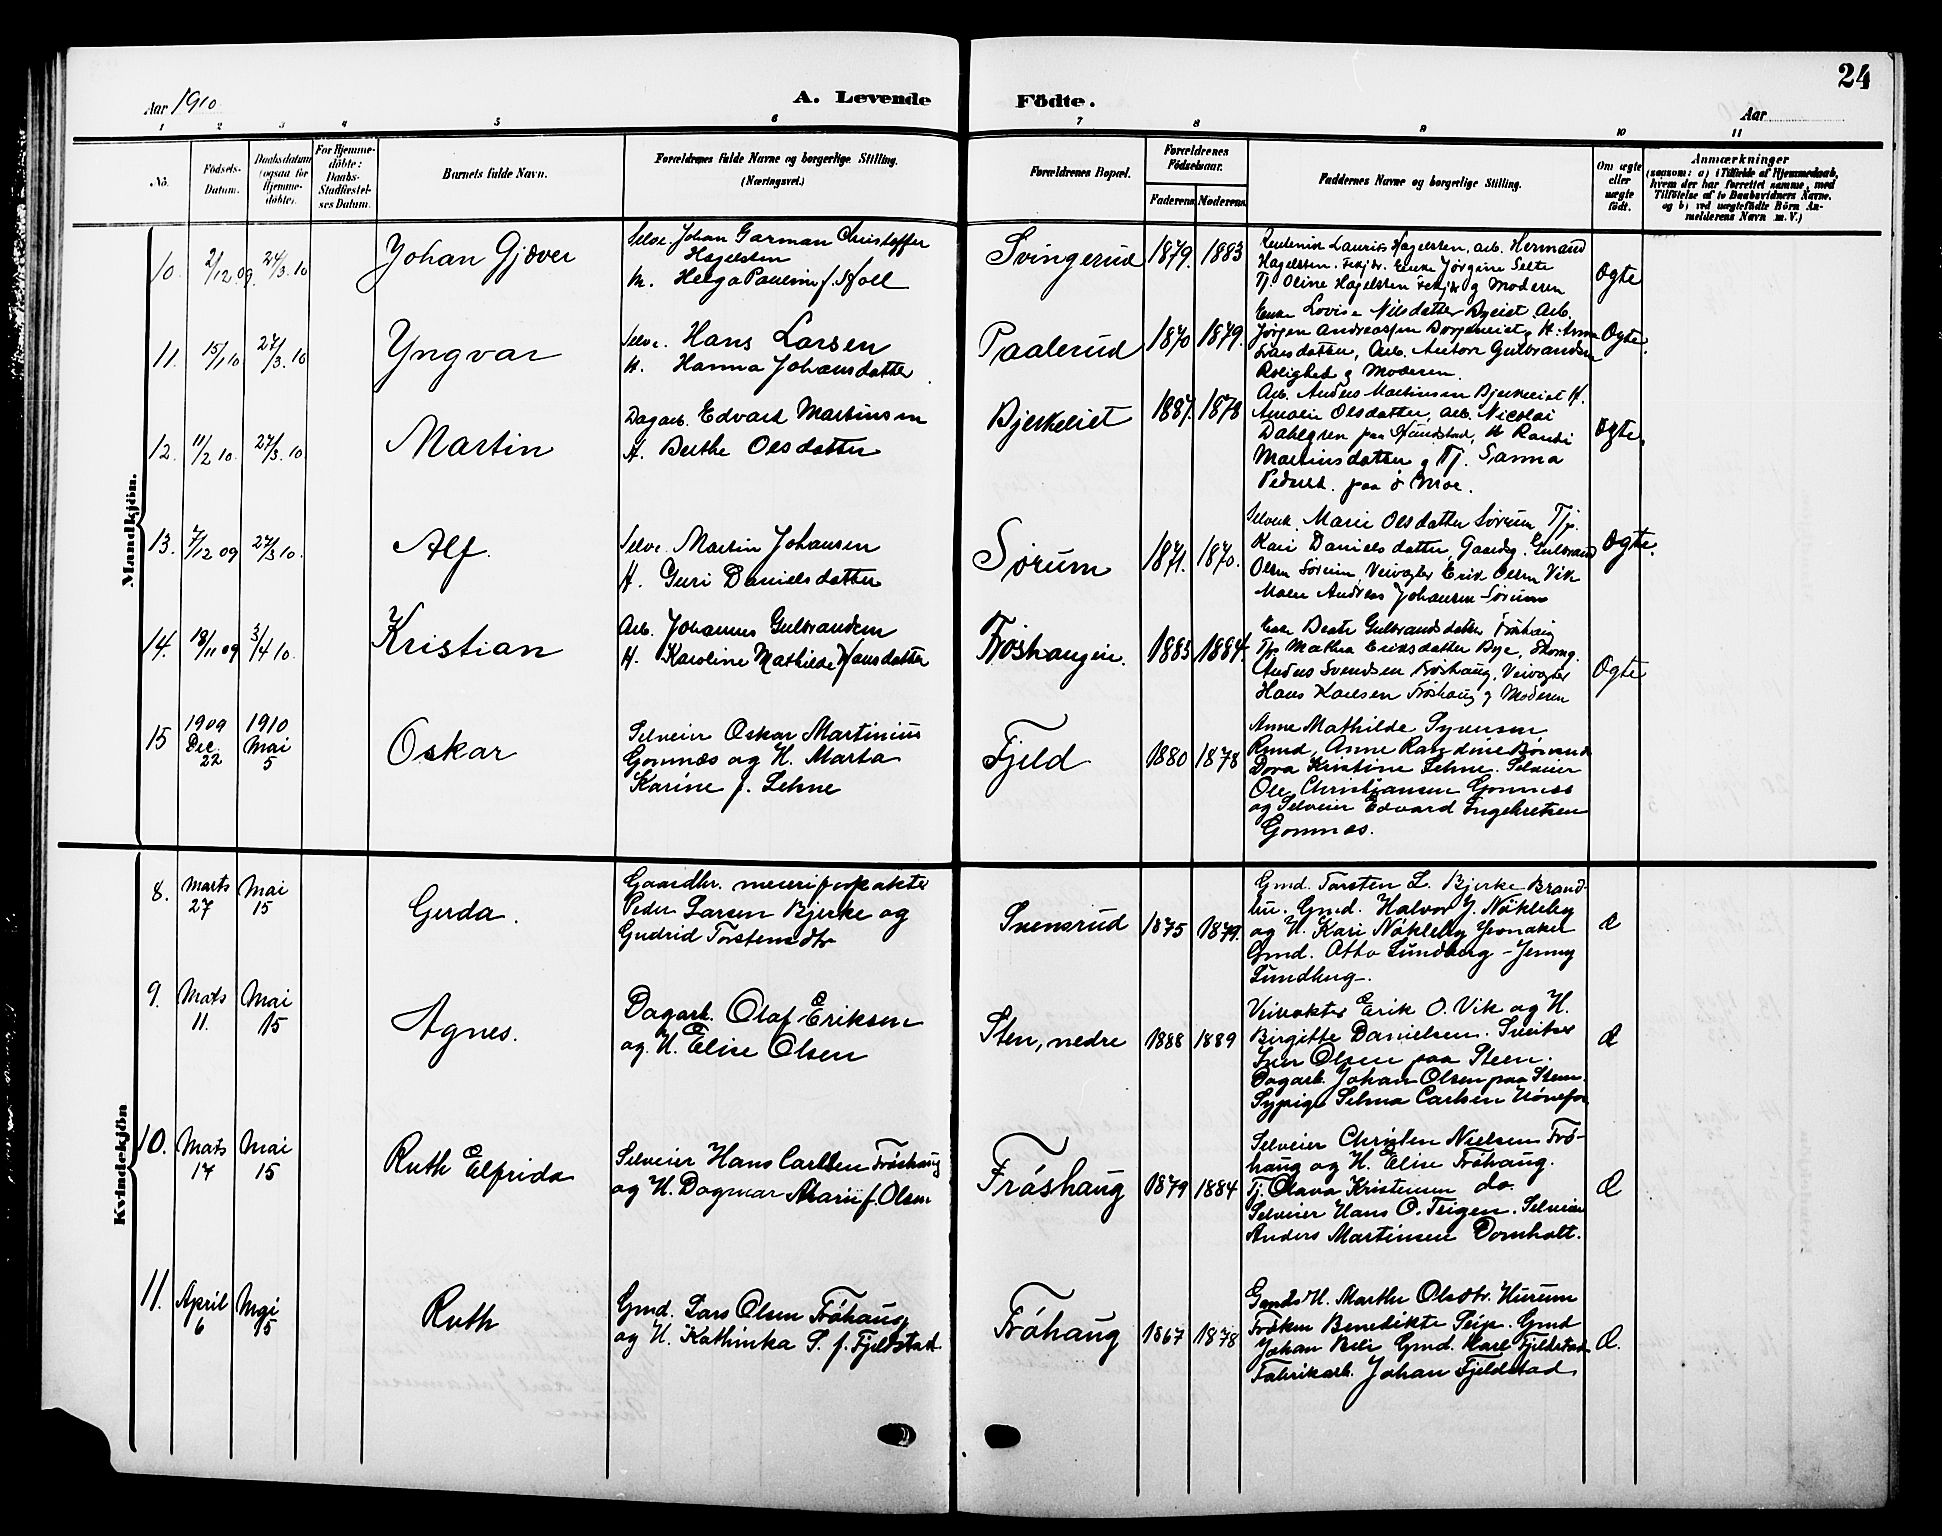 24
Aar 1910
A. Levende Födte.
Aar
1 2 3 4 5 6 7 8 9 10 11
No.
Födsels-
Datum.
Daabsdatum
(ogsaa for
Hjemme-
döbte).
For Hjemme-
döbte:
Daabs-
Stadfæstel-
ses Datum.
Barnets fulde Navn.
Forældrenes fulde Navne og borgerlige Stilling.
(Næringsvei.)
Forældrenes Bopæl.
Forældrenes
Födselsaar.
Faderens Moderens
Faddernes Navne og borgerlige Stilling.
Om ægte
eller
uægte
födt.
Anmærkninger
(saasom: a) i Tilfælde af Hjemmedaab,
hvem der har forrettet samme, med
Tilföielse af to Daabsvidners Navne,
og b) ved uægtefödte Börn An-
melderens Navn m. V.)
Mandkjön.
10. 2/12 09. 24/3. 10 Johan Gjæver
Selve. Johan Garman Christoffer
Hagelsten
H. Helga Pauline f.
Svingerud 1879. 1883
Laurits Hagelsten, arb. Herman
Hagelsten. Enke Jørgine Selte
Tj. Oline Hagelsten g Moderen
Ogte
11. 15/1 10 27/3. 10 Yngvar
Selve. Hans Larsen
H. Hanna Johansdatter
Paalerud 1870 1879.
Enke Lovise Nilsdatter Byeiet Arb.
Jørgen Andreassen Borgeneiet, H. Anna
Larsdatter, Arb. Anton Gulbrandsen
Rolighed g Moderen.
Ogte.
12. 11/2 10. 27/3. 10 Martin
Dagarb. Edvard Martinsen
H. Berthe Olsdatter
Bjerkeeiet 1887. 1878
Arb. Anders Martinsen Bjerkeeiet H.
Amalie Olsdatter, Arb. Nicolai
Dahlgren paa Hundstad, H Randi
Martinsdatter g Tj. Sanna
Peders. paa ö Moe.
Ogte.
13. 7/12 09 27/3 10. Alf.
Selve. Martin Johansen
H. Guri Danielsdatter
Sørum 1871. 1870.
Selveh. Marie Olsdatter Sørum Tjp.
Kari Danielsdatter, Gaardbg. Gulbrand
Olsen Sørum, Veivogter Erik Olsen Vik
Maler Andreas Johansen Sørum
Ogte.
14. 18/11 09 3/4 10. Kristian
Arb. Johannes Gulbrandsen
H. Karoline Mathilde Hansdatter
Frøshaugen. 1883 1884.
Enke Beate Gulbrandsdatter Frøshaug
Tjp Mathea Eriksdatter Bye,
Anders Svendsen Frøshaug, Veivogter
Hans Karlsen Frøshaug g Moderen
Ogte
15 1909 Dec. 22 1910 Mai 5 Oskar
Selveier Oskar Martinius
Gomnæs og H. Marta
Karine f. Lehne
Fjeld 1880 1878
Anne Mathilde Syversen
Rund, Anne Randine
Dora Kristine Lehne. Selveier
Ole Christiansen Gomnæs
og Selveier Edvard Ingebretsen
Gomnæs.
Kvindekjön
8. Marts 27 Mai 15 Gerda.
Gaardbr. meieriforpakter
Peder Larsen Bjerke og
Gudrid Torstensdtr
Svensrud 1875 1879.
Gmd. Torsten L. Bjerke Brand-
bu. Gmd. Halvor J. Nökleby
og H. Kari Nökleby Jevnaker
Gmd. Otto Lundberg - Jenny
Lundberg.
Æ
9. Mats 11. Mai 15 Agnes.
Dagarb. Olaf Eriksen
og H. Elise Olsen
Sten, nedre 1888 1889
Veivokter Erik O. Vik og H.
Birgitte Danielsen. Sveitser
Iver Olsen paa Steen.
Dagarb. Johan Olsen paa Steen.
Sypige Selma Carlsen Hønefos
Æ
10. Mats 17 Mai 15 Ruth Elfrida
Selveier Hans Carlsen Frøshaug
og H. Dagmar Marie f. Olsen
Frøshaug 1879 1884
Selveier Christen Nielsen Frø-
haug og H. Elise Frøhaug.
Tj. Olava Kristensen do.
Selveier Hans O. Teigen. Selveier
Anders Martinsen Domholt.
Æ
11. April 6 Mai 15 Ruth
Gmd. Lars Olsen Frøhaug
og H. Kathinka S. f. Fjeldstad
Frøhaug 1867 1878
Gmds H. Marthe Olsdtr. Hurum
Frøken Benedikte Seip. Gmd
Johan Beli Gmd. Karl Fjeldstad
Fabrikarb. Johan Fjeldstad
Æ.